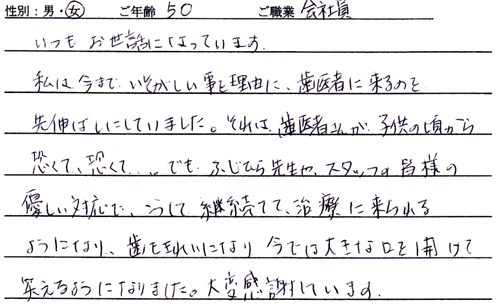 性別：男・女　ご年齢 50　ご職業 会社員
いつも お世話になっています。
私は今まで いそがしい事を理由に、歯医者に来るのを
先伸ばしにしていました。それは、歯医者さんが 子供の頃から
恐くて、恐くて... でも、ふじむら先生や、スタッフの皆様の
優しい対応で、こうして 継続てて、治療に来られる
ようになり、歯もきれいになり 今では大きな口を開けて
笑えるようになりました。大変感謝しています。